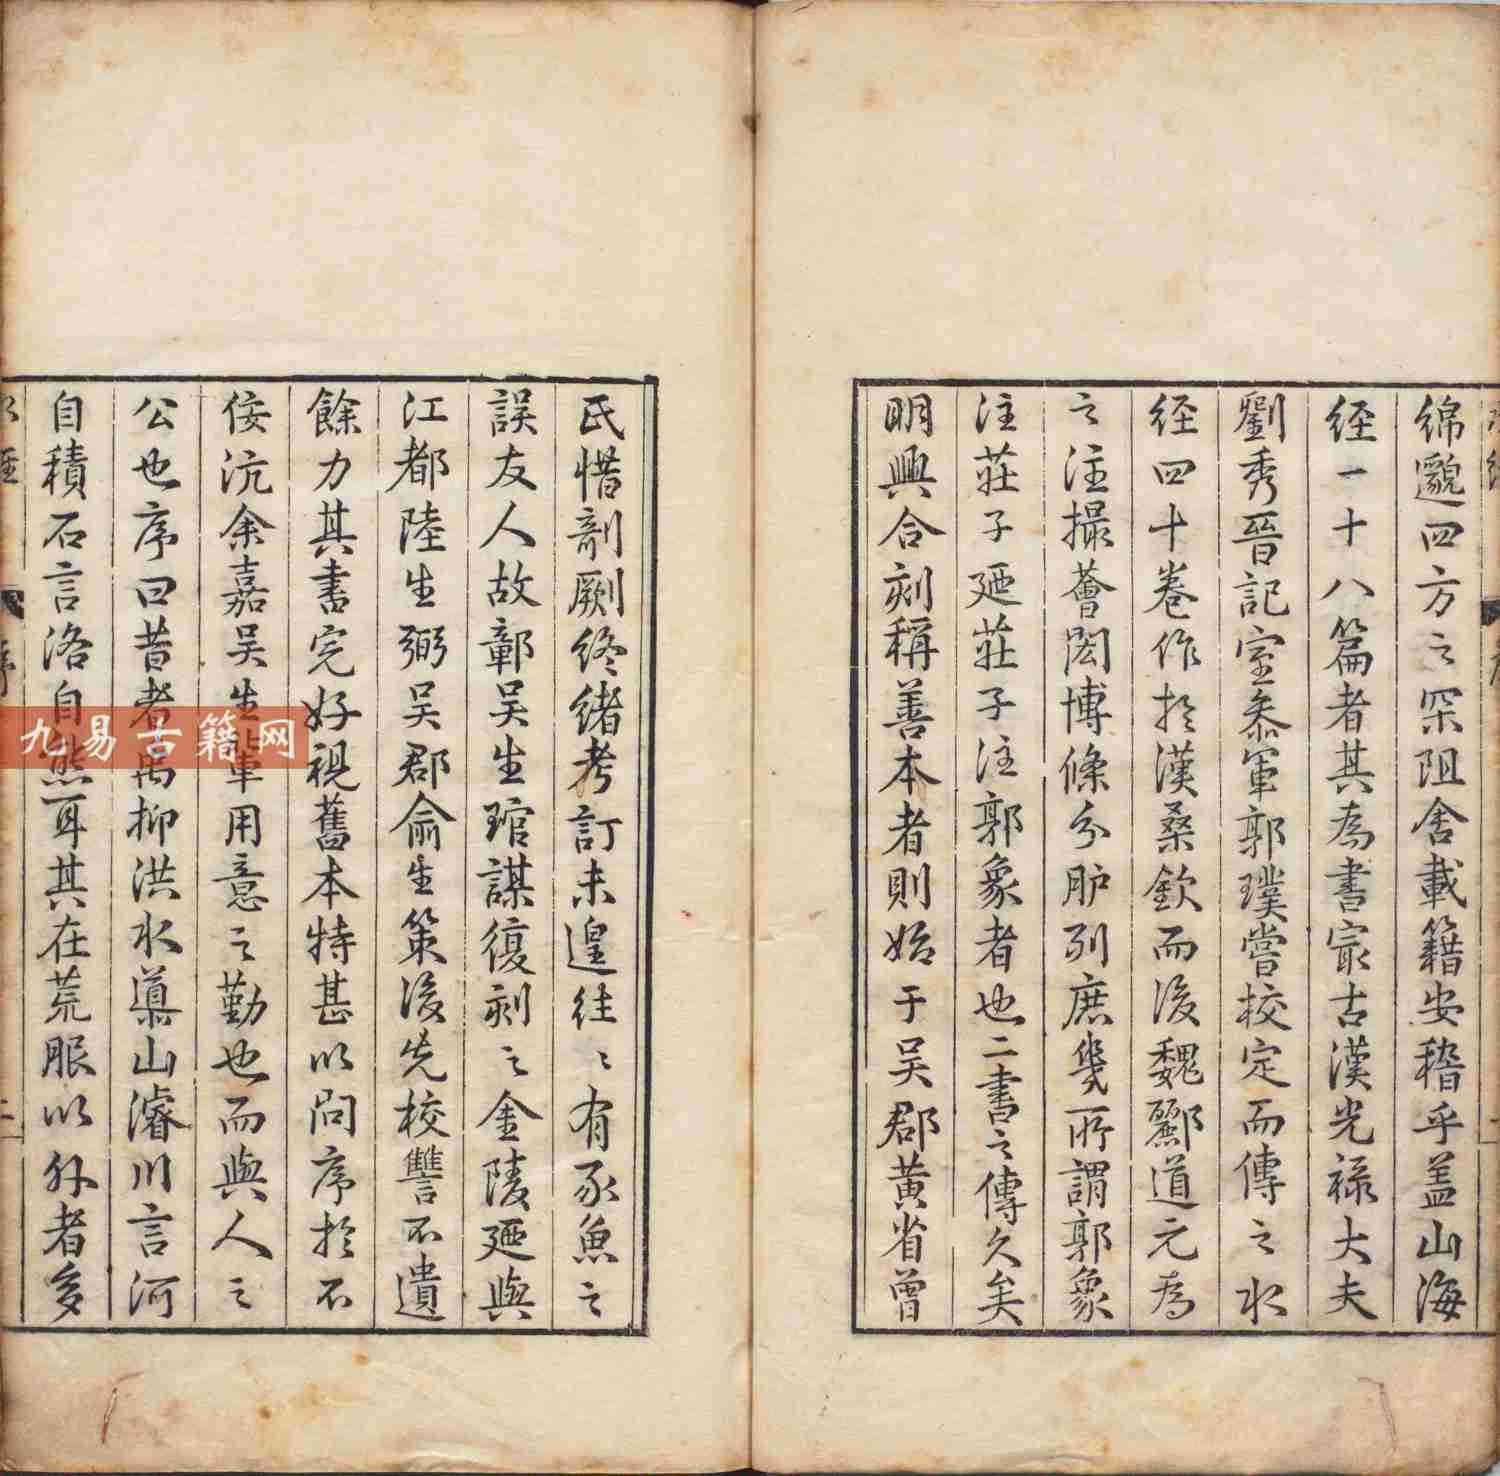 綿邈四方之罙阻舍載籍安稽乎盖山海
経一十八篇者其為書㝡古漢光禄大夫
劉秀晉記室叅軍郭璞嘗校定而傳之水
経四十卷作扵漢桑欽而後魏酈道元為
之注撮薈閎博條分胪列庶幾所謂郭象
注莊子廼莊子注郭象者也二書之傳久矣
明興合刻稱善本者則始于吴郡黄省曾
氏惜剞劂終緒考訂未遑往〻有豕魚之
誤友人故鄣吴生琯謀復刻之金陵廼與
江都陸生弼吴郡俞生策後先校讐不遺
餘力其書完好視舊本特甚以問序扵不
佞沆余嘉吴生軰用意之勤也而與人之
公也序曰昔者禹抑洪水𨗉山濬川言河
自積石言洛自熊耳其在荒服以外者多
九易古籍网